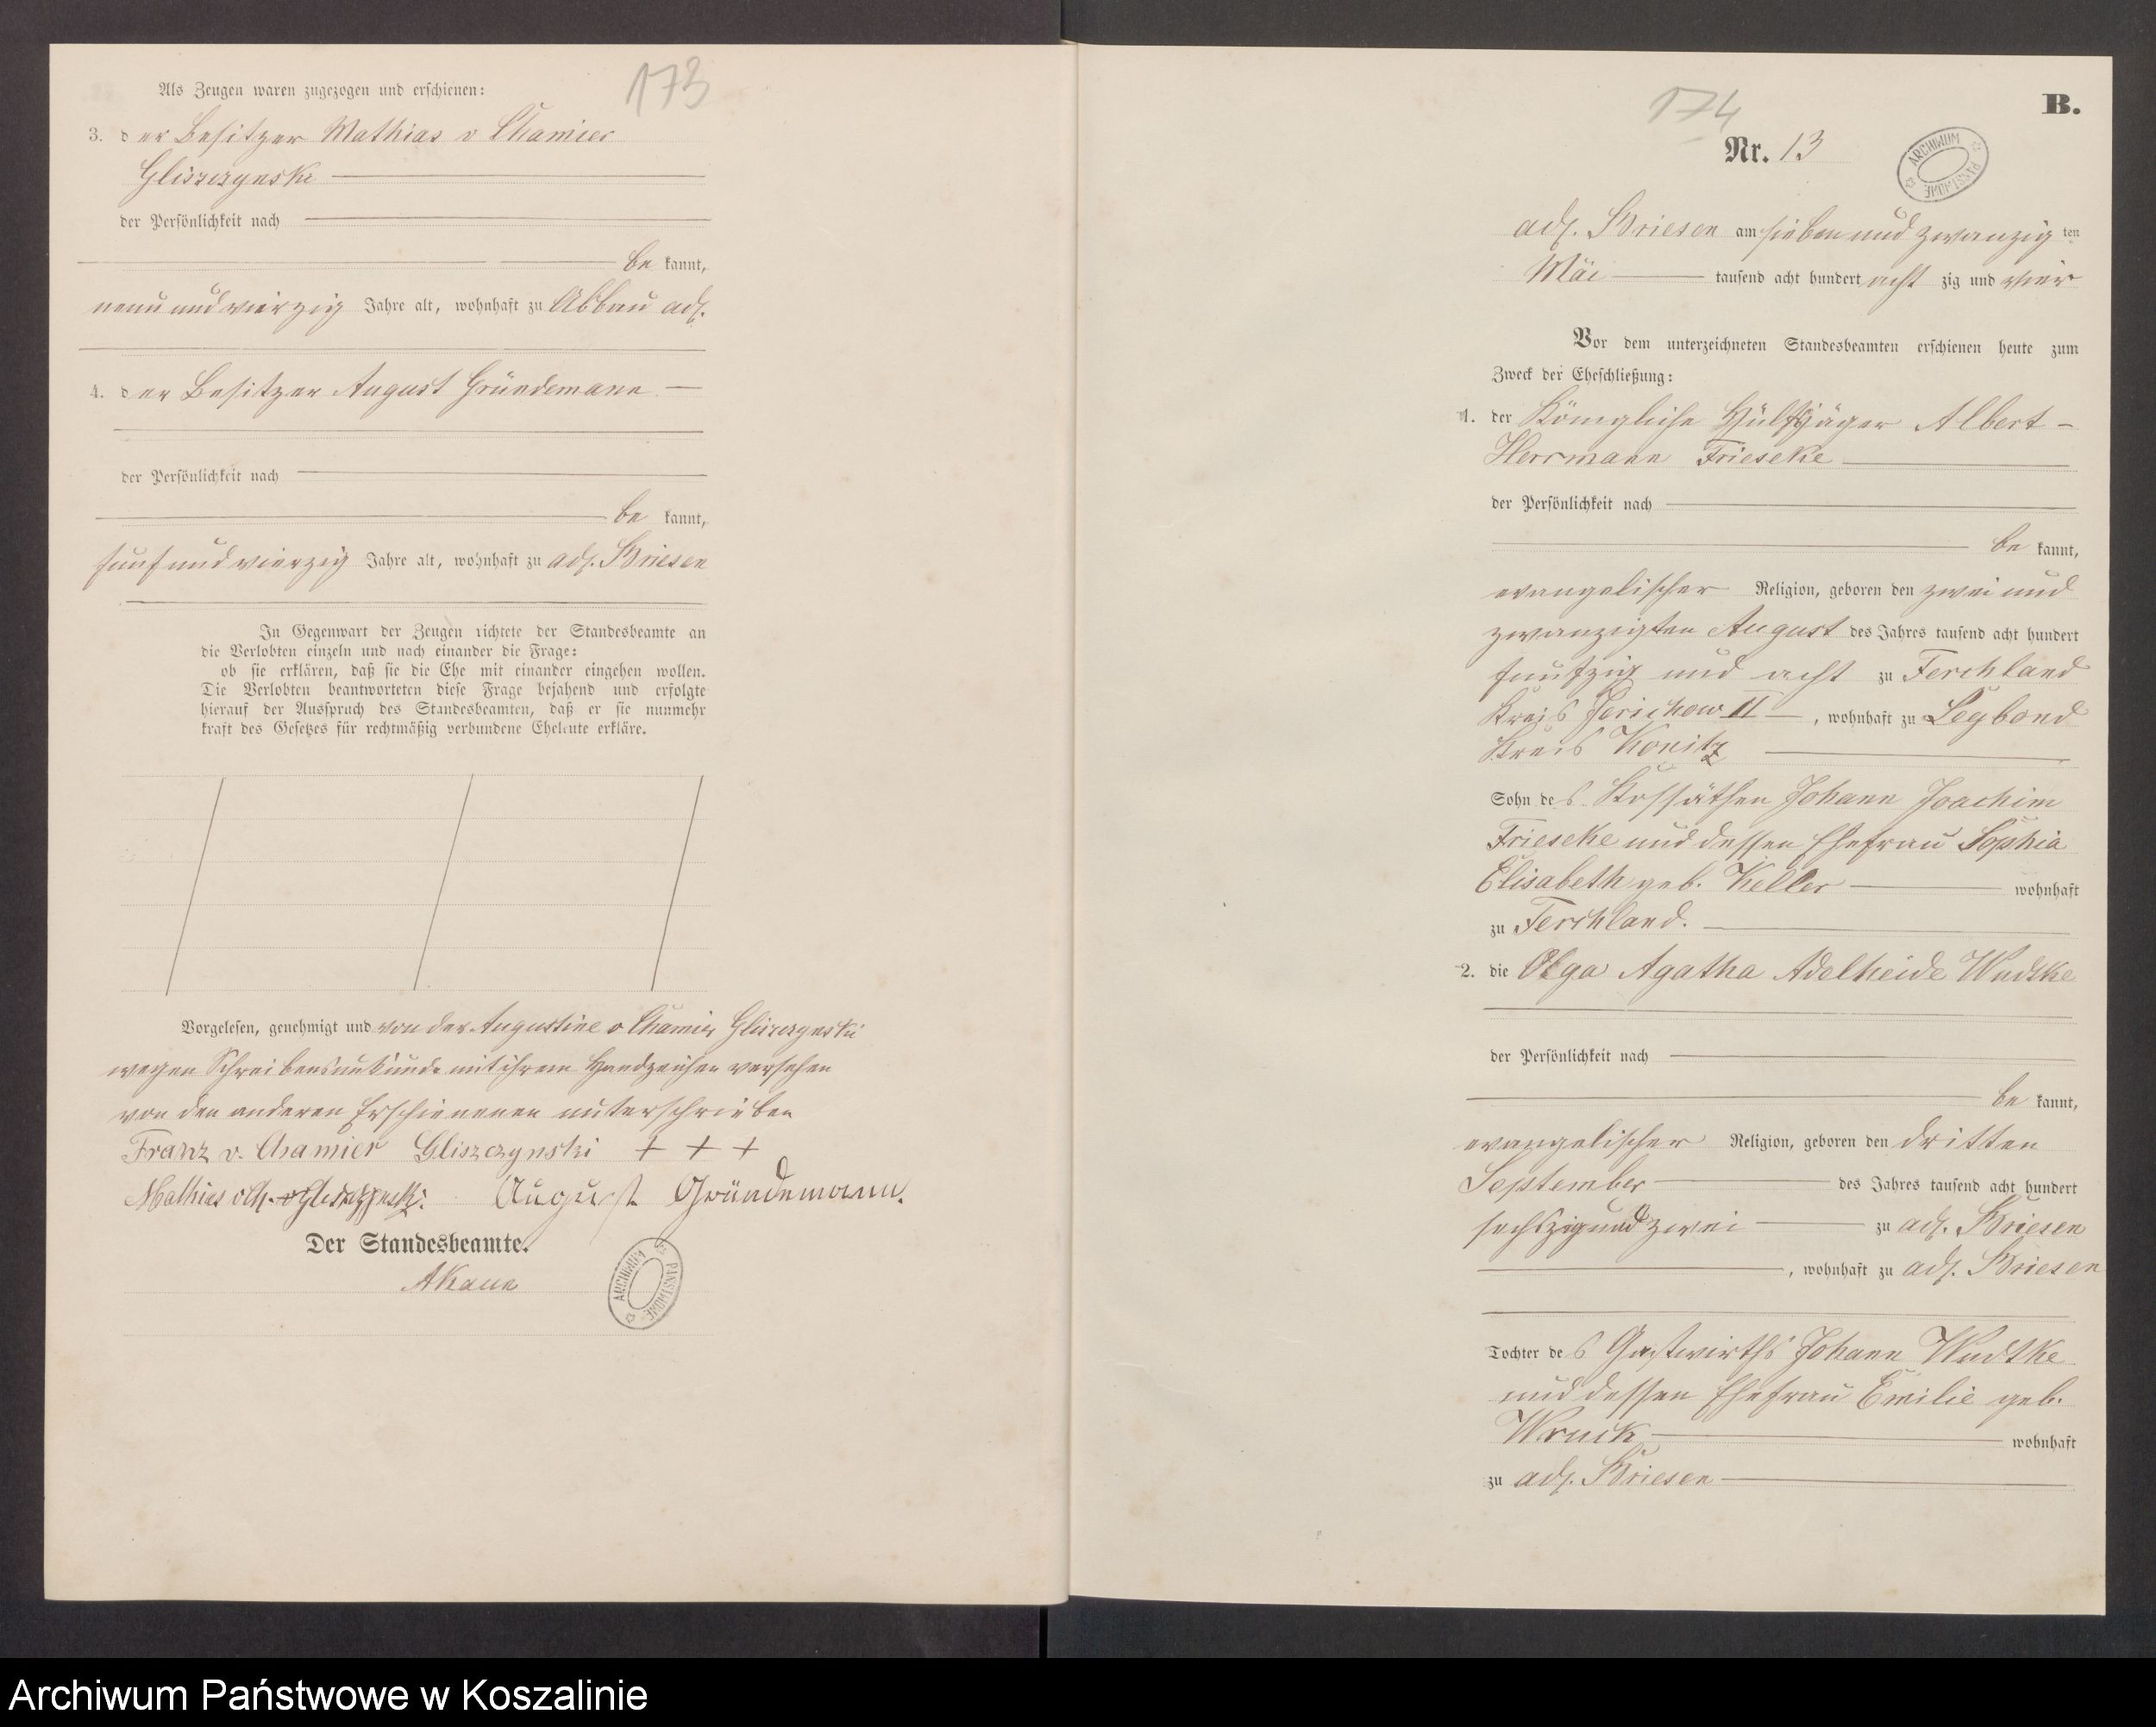 173
Als Zeugen waren zugezogen und erschienen:
3. der Besitzer Mathias v Chamier
Gliszczynski
der Persönlichkeit nach
be kannt,
neun und vierzig Jahre alt, wohnhaft zu Abbau adl.
4. der Besitzer August Gründemann
der Persönlichkeit nach
be kannt,
fünf und vierzig Jahre alt, wohnhaft zu adl. Briesen
In Gegenwart der Zeugen richtete der Standesbeamte an
die Verlobten einzeln und nach einander die Frage:
ob sie erklären, daß sie die Ehe mit einander eingehen wollen.
Die Verlobten beantworteten diese Frage bejahend und erfolgte
hierauf der Ausspruch des Standesbeamten, daß er sie nunmehr
kraft des Gesetzes für rechtmäßig verbundene Eheleute erkläre.
Vorgelesen, genehmigt und von der Augustine v Chamier Gliszczynski
wegen Schreibensunkunde mit ihrem Handzeichen versehen
von den anderen Erschienenen unterschrieben
Franz v. Chamier Gliszczynski + + +
Mathias v Ch. August Gründemann.
Der Standesbeamte.
ARCHIWUM PAŃSTWOWE
174
B.
Nr. 13
ARCHIWUM PAŃSTWOWE
adl. Briesen am sieben und zwanzig ten
Mai tausend acht hundert acht zig und vier
Vor dem unterzeichneten Standesbeamten erschienen heute zum
Zweck der Eheschließung:
1. der Königliche Hülfsjäger Albert
Herrmann Frieseke
der Persönlichkeit nach
be kannt,
evangelischer Religion, geboren den zwei und
zwanzigsten August des Jahres tausend acht hundert
fünfzig und acht zu Ferchland
Kreis Jerichow II, wohnhaft zu Legbond
Kreis Konitz
Sohn des Kossäthen Johann Joachim
Frieseke und dessen Ehefrau Sophia
Elisabeth geb. Keller wohnhaft
zu Ferchland.
2. die Olga Agatha Adelheide Wudtke
der Persönlichkeit nach
be kannt,
evangelischer Religion, geboren den dritten
September des Jahres tausend acht hundert
sechszig und zwei zu adl. Briesen
, wohnhaft zu adl. Briesen
Tochter des Gastwirths Johann Wudtke
und dessen Ehefrau Emilie geb.
Wruck wohnhaft
zu adl. Briesen
Archiwum Państwowe w Koszalinie